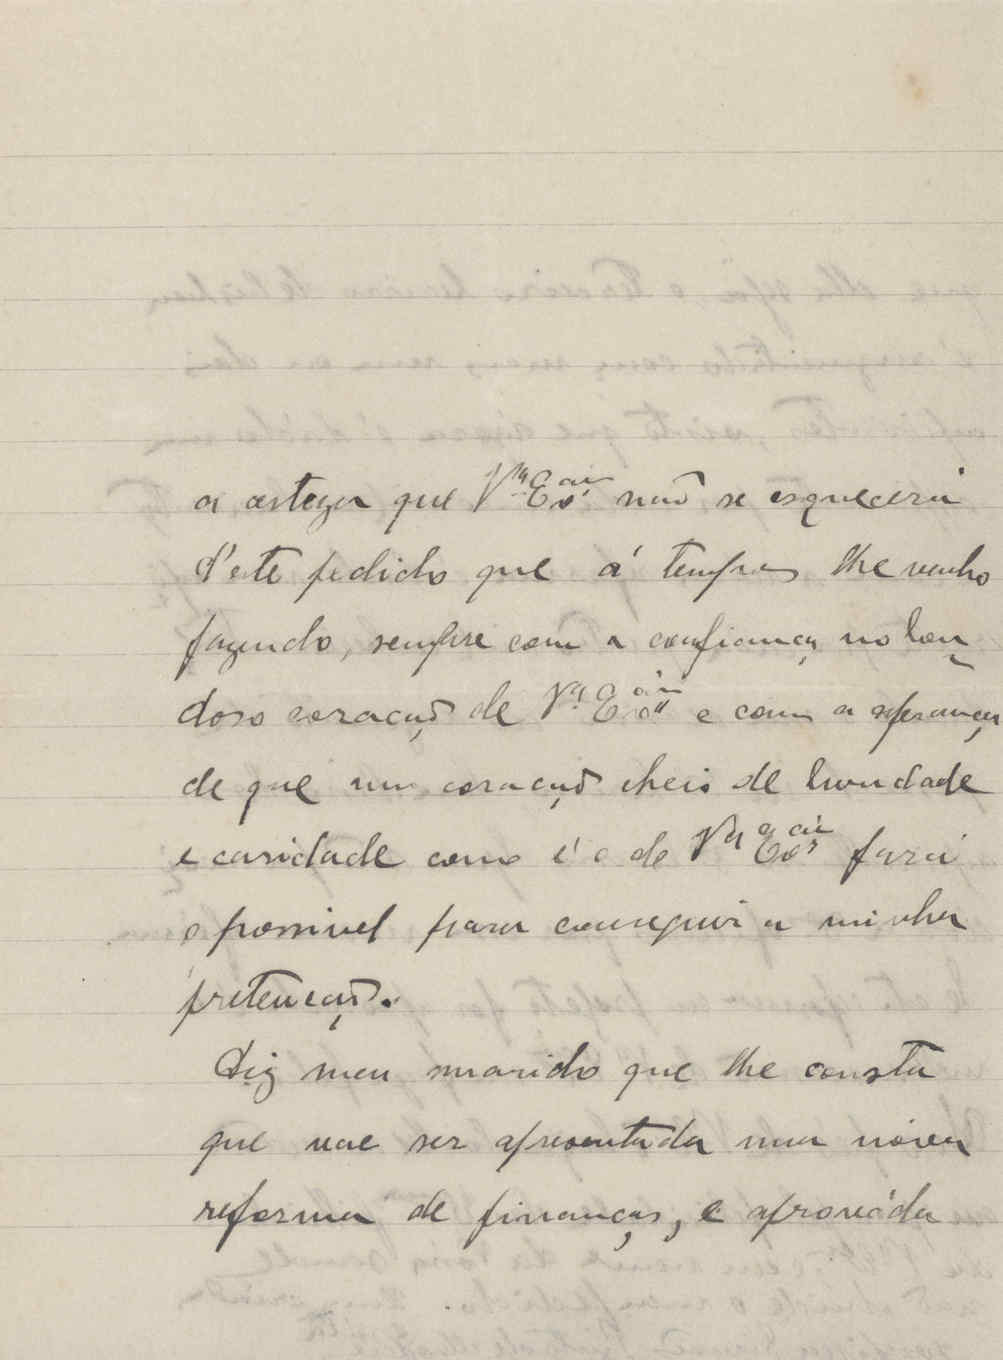 a certeza que Vª Exciª não se esquecerá
d'este pedido que á tempos lhe venho
fazendo, sempre com a confiança no bon
doso coração de Vª Exciª e com a esperança
de que um coração cheio de bondade
e caridade como é o de Vª Exciª fará
o possivel para conseguir a minha
pretenção.
Diz meu marido que lhe consta
que vae ser apresentada uma nóva
reforma de finanças, e aprováda